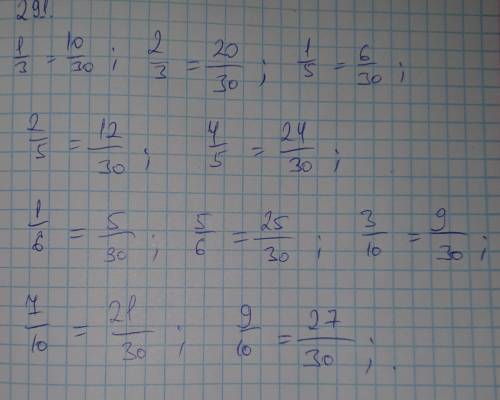 291.
1/3 = 10/30 ; 2/3 = 20/30 ; 1/5 = 6/30 ;
2/5 = 12/30 ; 4/5 = 24/30 ; .
1/6 = 5/30 ; 5/6 = 25/30 ; 3/10 = 9/30 ;
7/10 = 21/30 ; 9/10 = 27/30 ; .